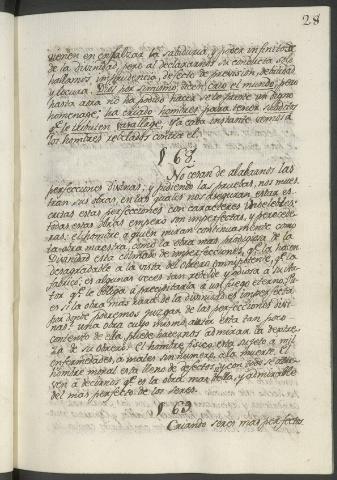 28
vienen en enzalzar la sabiduria, y poder infinito de
la divinidad, pero al declararnos su conducta solo
hallamos, imprudencia, defecto de prevision, debilidad
y locura. Dios por si mismo, dicen, creo el mundo, pero
hasta aora no ha podido hacer se le preste un digno
homenage; ha criado hombres para tener subditos
qe. le tributen vasallage, y a cada instante vemos a
los hombres revelarse contra el.
§ 68.
No cesan de alabarnos las
perfecciones divinas; y pidiendo las pruebas, nos mues-
tran sus obras, en las quales nos aseguran estar es-
critas estas perfecciones con caracteres indelebles.
todas estas obras empero son imperfectas, y perecede-
ras: el hombre a quien miran continuamente como
la obra maestra, como la obra mas prodigiosa de la
Divinidad esta colmado de imperfecciones, qe. le hacen
desagradable a la vista del obrero omnipotente, qe. la
fabricó; es algunas veces tan rebelde y odiosa a su Au-
tor qe. se vé obligado a precipitarla a un fuego eterno, Pues
es si la obra mas rara de la divinidad es imperfecta,
por donde podremos juzgar de las perfecciones divi-
nas? una obra cuyo mismo autor esta tan poco
contento de ella, puede hacernos admirar la destre-
za de su obrero? El hombre fisico, esta sujeto a mil
enfermedades, a males sin numero, a la muerte. el
hombre moral esta lleno de defectos; y con todo se atre-
ven á decirnos qe. es la obra mas bella, y admirable
del mas perfecto de los seres.
§ 69.
Criando seres mas perfectos